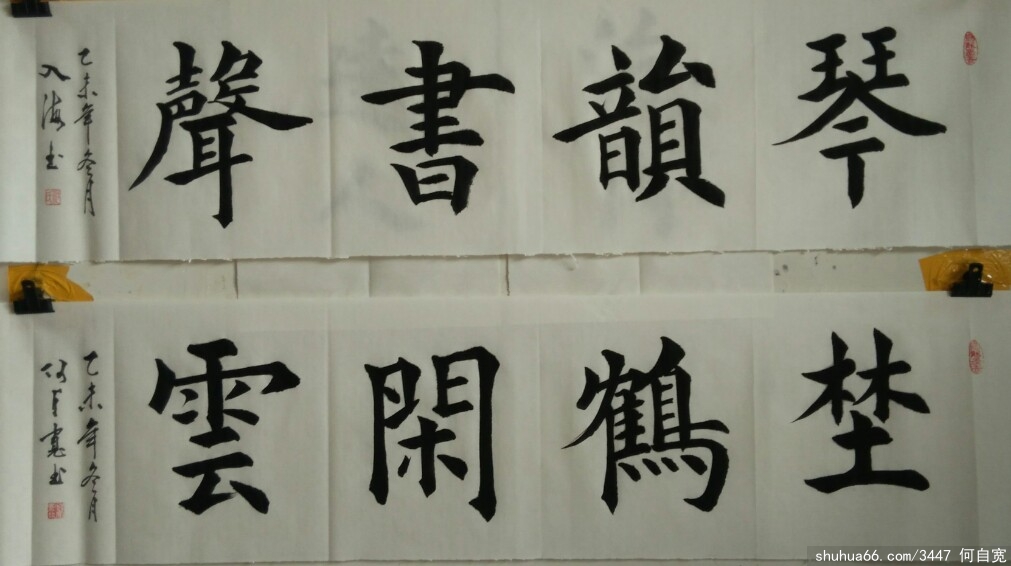 琴韻書聲
乙未年冬月
入海书
埜鶴閑雲
乙未年冬月
何自宽书
shuhua66.com/3447 何自宽